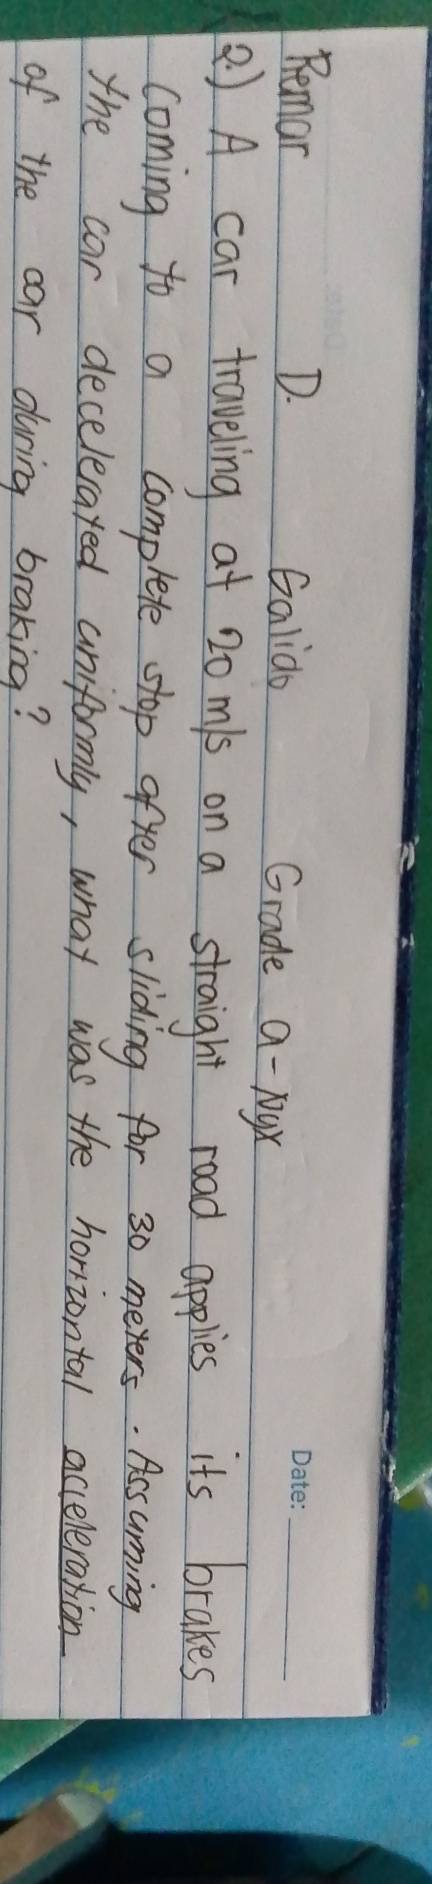 Date:
Remar D. Galido Grade 9-Nyx
2.) A car traveling at 20 m/s on a straight road applies its brakes
coming to a complete stop after sliding for 30 meters. Assuming
the car decelerated uniformly, what was the horizontal acceleration
of the car during braking?